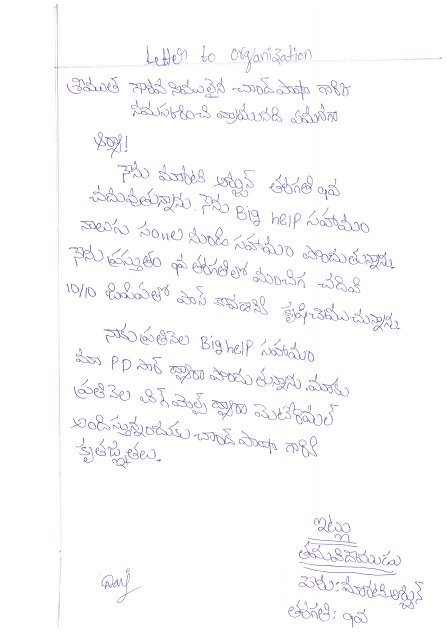 Letter to organization
శ్రీయుత గౌరవనీయులైన చాంద్ పాషా గారికి
నమస్కరించి వ్రాయునది ఏమనగా
ఆర్యా!
నేను మారాటి అర్జున్ తరగతి 10వ
చదువుతున్నాను. నేను Big help సహాయం
నాలుగు సం॥ల నుండి సహాయం పొందుతున్నాను.
నేను ప్రస్తుతం 10వ తరగతిలో మంచిగ చదివి
10/10 జిపిఎతో పాస్ కావడానికి కృషిచేయుచున్నాను
నాకు ప్రతినెల Bighelp సహాయం
మా PD సార్ ద్వారా పొందుతున్నాను. మాకు
ప్రతినెల బిగ్ హెల్ప్ ద్వారా మెటీరియల్
అందిస్తున్నందుకు చాంద్ పాషా గారికి
కృతజ్ఞతలు.
ఇట్లు
తమ విదేయుడు
పేరు: మారాటి అర్జున్
తరగతి: 10వ